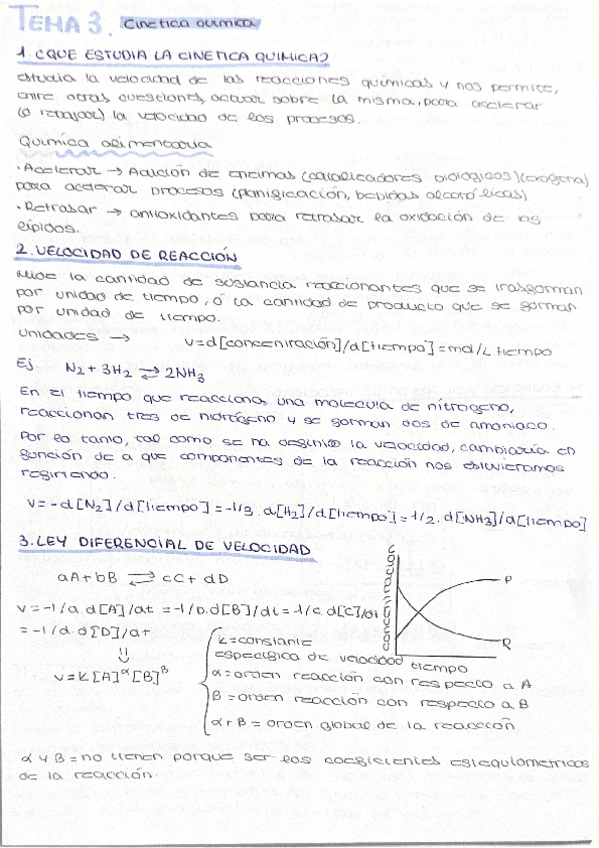 TEMA 3. Cinética química
1. ¿QUE ESTUDIA LA CINETICA QUIMICA?
estudia la velocidad de las reacciones químicas y nos permite,
entre otras cuestiones, actuar sobre la misma, para acelerar
(o rebajar) la velocidad de los procesos.
Química alimentaria
· Acelerar → Adición de enzimas (catalizadores biológicos) (exógena)
para acelerar procesos (panificación, bebidas alcohólicas)
· Retrasar → antioxidantes para retrasar la oxidación de los
lípidos.
2. VELOCIDAD DE REACCIÓN
Mide la cantidad de sustancia reaccionantes que se trasforman
por unidad de tiempo, ó la cantidad de producto que se forman
por unidad de tiempo.
unidades → v=d[concentración]/d[tiempo]=mol/L tiempo
Ej N2 + 3H2 ⇌ 2NH3
En el tiempo que reacciona una molecula de nitrogeno,
reaccionan tres de hidrógeno y se forman dos de amoniaco.
Por lo tanto, tal como se ha definido la velocidad, cambiaría en
función de a que componentes de la reacción nos estuvieramos
refiriendo.
v=-d[N2]/d[tiempo]=-1/3.d[H2]/d[tiempo]=1/2.d[NH3]/d[tiempo]
3. LEY DIFERENCIAL DE VELOCIDAD
aA+bB ⇌ cC + dD
v=-1/a.d[A]/dt =-1/b.d[B]/dt=-1/c.d[C]/dt
=-1/d.d[D]/dt
⇓
v=K[A]^α[B]^β
concentración
P
R
tiempo
K=constante
específica de velocidad
α=orden reacción con respecto a A
β=orden reacción con respecto a B
α+β=orden global de la reacción
α y β=no tienen porque ser los coeficientes estequiometricos
de la reacción.